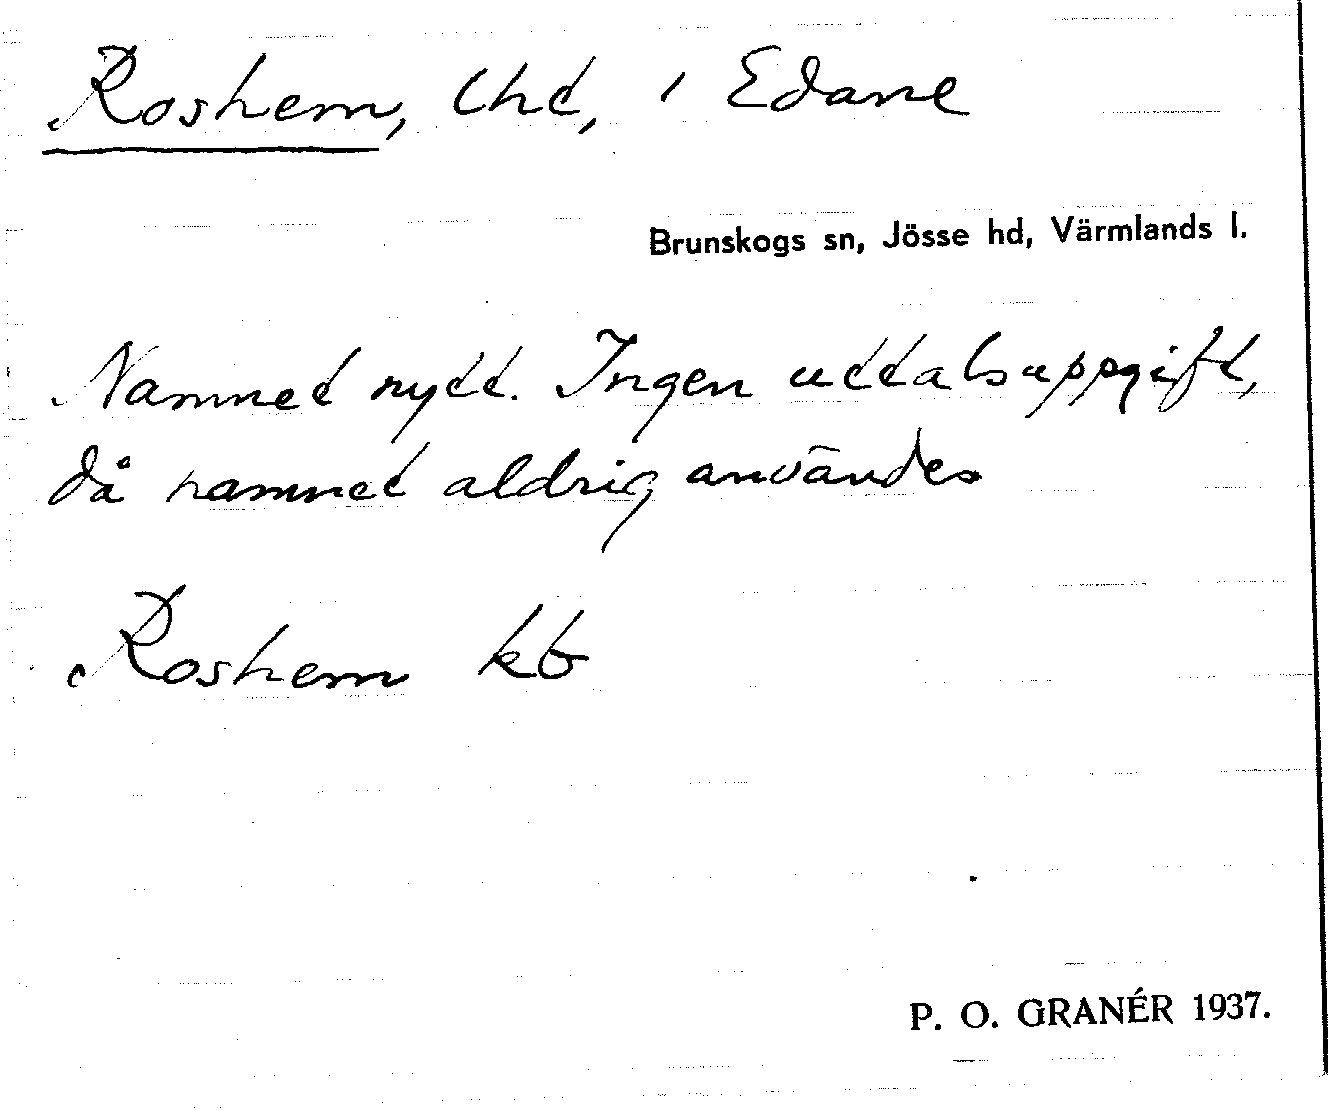 Roshem, lht, i Edane
Brunskogs sn, Jösse hd, Värmlands l.
Namnet nytt. Ingen uttalsuppgift,
då namnet aldrig användes
Roshem kb
P. O. GRANÉR 1937.